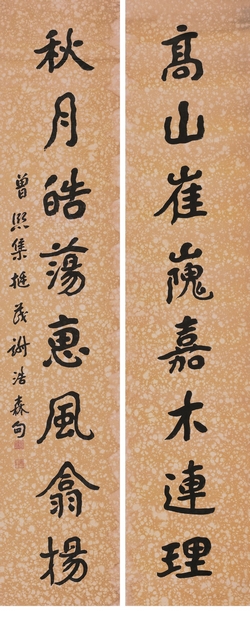 高山崔嵬嘉木連理
秋月皓蕩惠風翕揚
曾熙集挻茂謝浩森句